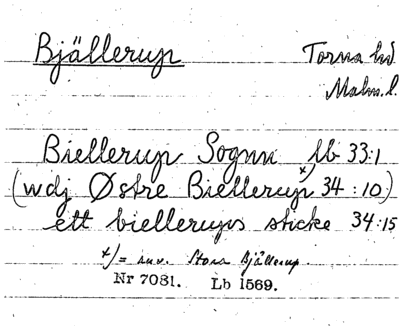 Bjällerup Torna hd
Malm. l.
Biellerup Sognn lb 33:1
(wdj Østre Biellerup x) 34:10)
ett biellerups sticke 34:15
x) = nuv. Stora Bjällerup.
Nr 7081. Lb 1569.